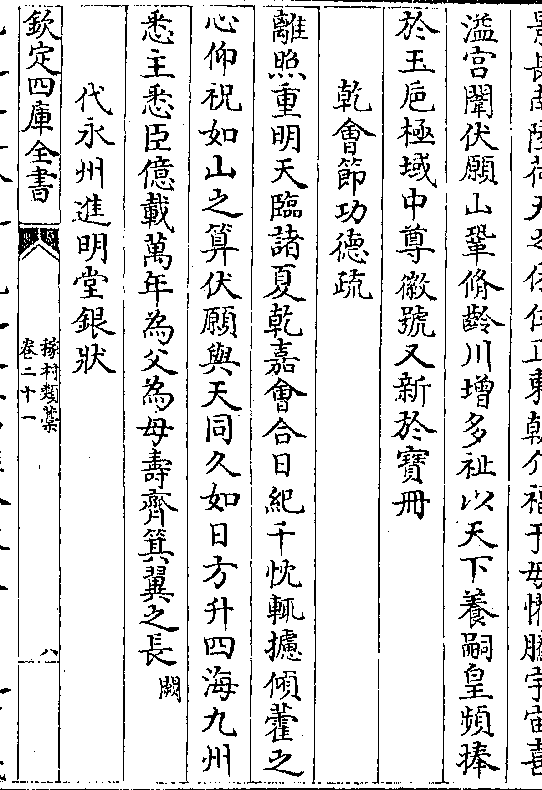 溢宫闈伏願山鞏脩齡川增多祉以天下養嗣皇頻捧
於玉巵極域中尊徽號又新於寶冊
乾會節功德疏
離照重明天臨諸夏乾嘉會合日紀千忱輒攄傾藿之
心仰祝如山之算伏願與天同久如日方升四海九州
悉主悉臣億載萬年為父為母壽齊箕翼之長闕
代永州進明堂銀狀
欽定四庫全書
梅村類藁
卷二十一
八